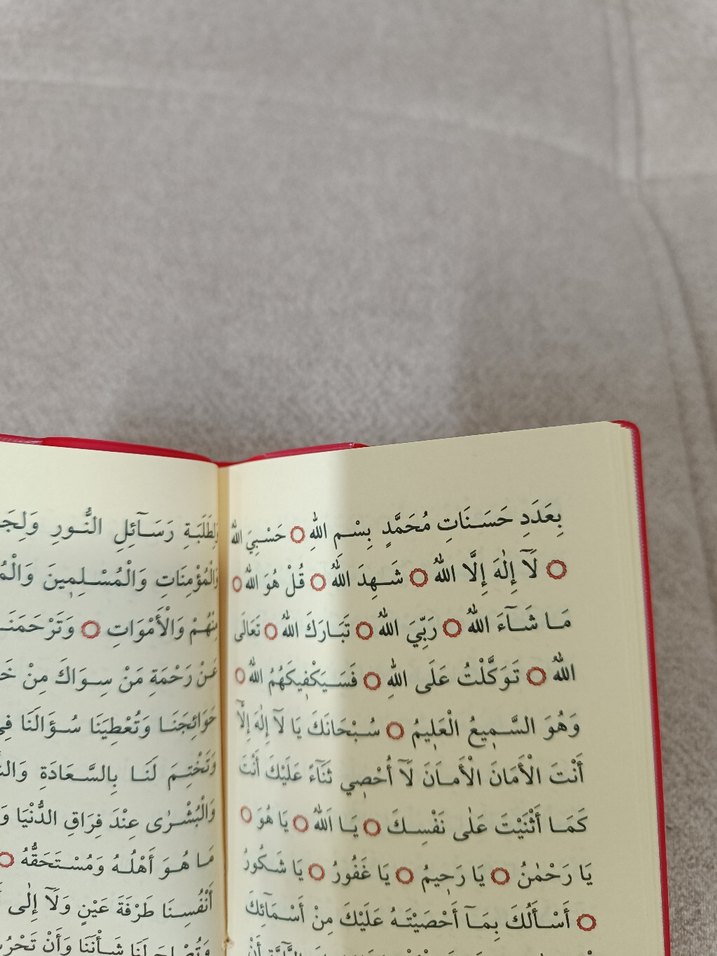 بِعَدَدِ حَسَنَاتِ مُحَمَّدٍ بِسْمِ اللهِ ۝ حَسْبِيَ اللهُ
۝ لَآ إِلٰهَ إِلَّا اللهُ ۝ شَهِدَ اللهُ ۝ قُلْ هُوَ اللهُ ۝
مَا شَآءَ اللهُ ۝ رَبِّيَ اللهُ ۝ تَبَارَكَ اللهُ ۝ تَعَالَى
اللهُ ۝ تَوَكَّلْتُ عَلَى اللهِ ۝ فَسَيَكْفِيكَهُمُ اللهُ ۝
وَهُوَ السَّمِيعُ الْعَلِيمُ ۝ سُبْحَانَكَ يَا لَآ إِلٰهَ إِلَّا
أَنْتَ الْأَمَانَ الْأَمَانَ لَآ أُحْصِي ثَنَاءً عَلَيْكَ أَنْتَ
كَمَا أَثْنَيْتَ عَلٰى نَفْسِكَ ۝ يَا اَللهُ ۝ يَا هُوَ ۝
يَا رَحْمٰنُ ۝ يَا رَحِيمُ ۝ يَا غَفُورُ ۝ يَا شَكُورُ
۝ أَسْأَلُكَ بِمَآ أَحْصَيْتَهُ عَلَيْكَ مِنْ أَسْمَآئِكَ
لِطَلَبَةِ رَسَآئِلِ النُّورِ
وَالْمُؤْمِنَاتِ وَالْمُسْلِمِينَ
مِنْهُمْ وَالْأَمْوَاتِ ۝
عَنْ رَحْمَةِ مَنْ سِوَاكَ مِنْ
حَوَائِجِنَا وَتُعْطِيَنَا سُؤَالَنَا فِي
وَتَخْتِمَ لَنَا بِالسَّعَادَةِ
وَالْبُشْرٰى عِنْدَ فِرَاقِ الدُّنْيَا
مَا هُوَ أَهْلُهُ وَمُسْتَحَقُّهُ ۝
أَنْفُسِنَا طَرْفَةَ عَيْنٍ وَلَآ إِلٰى
وَتُصْلِحَ لَنَا شَأْنَنَا وَأَنْ